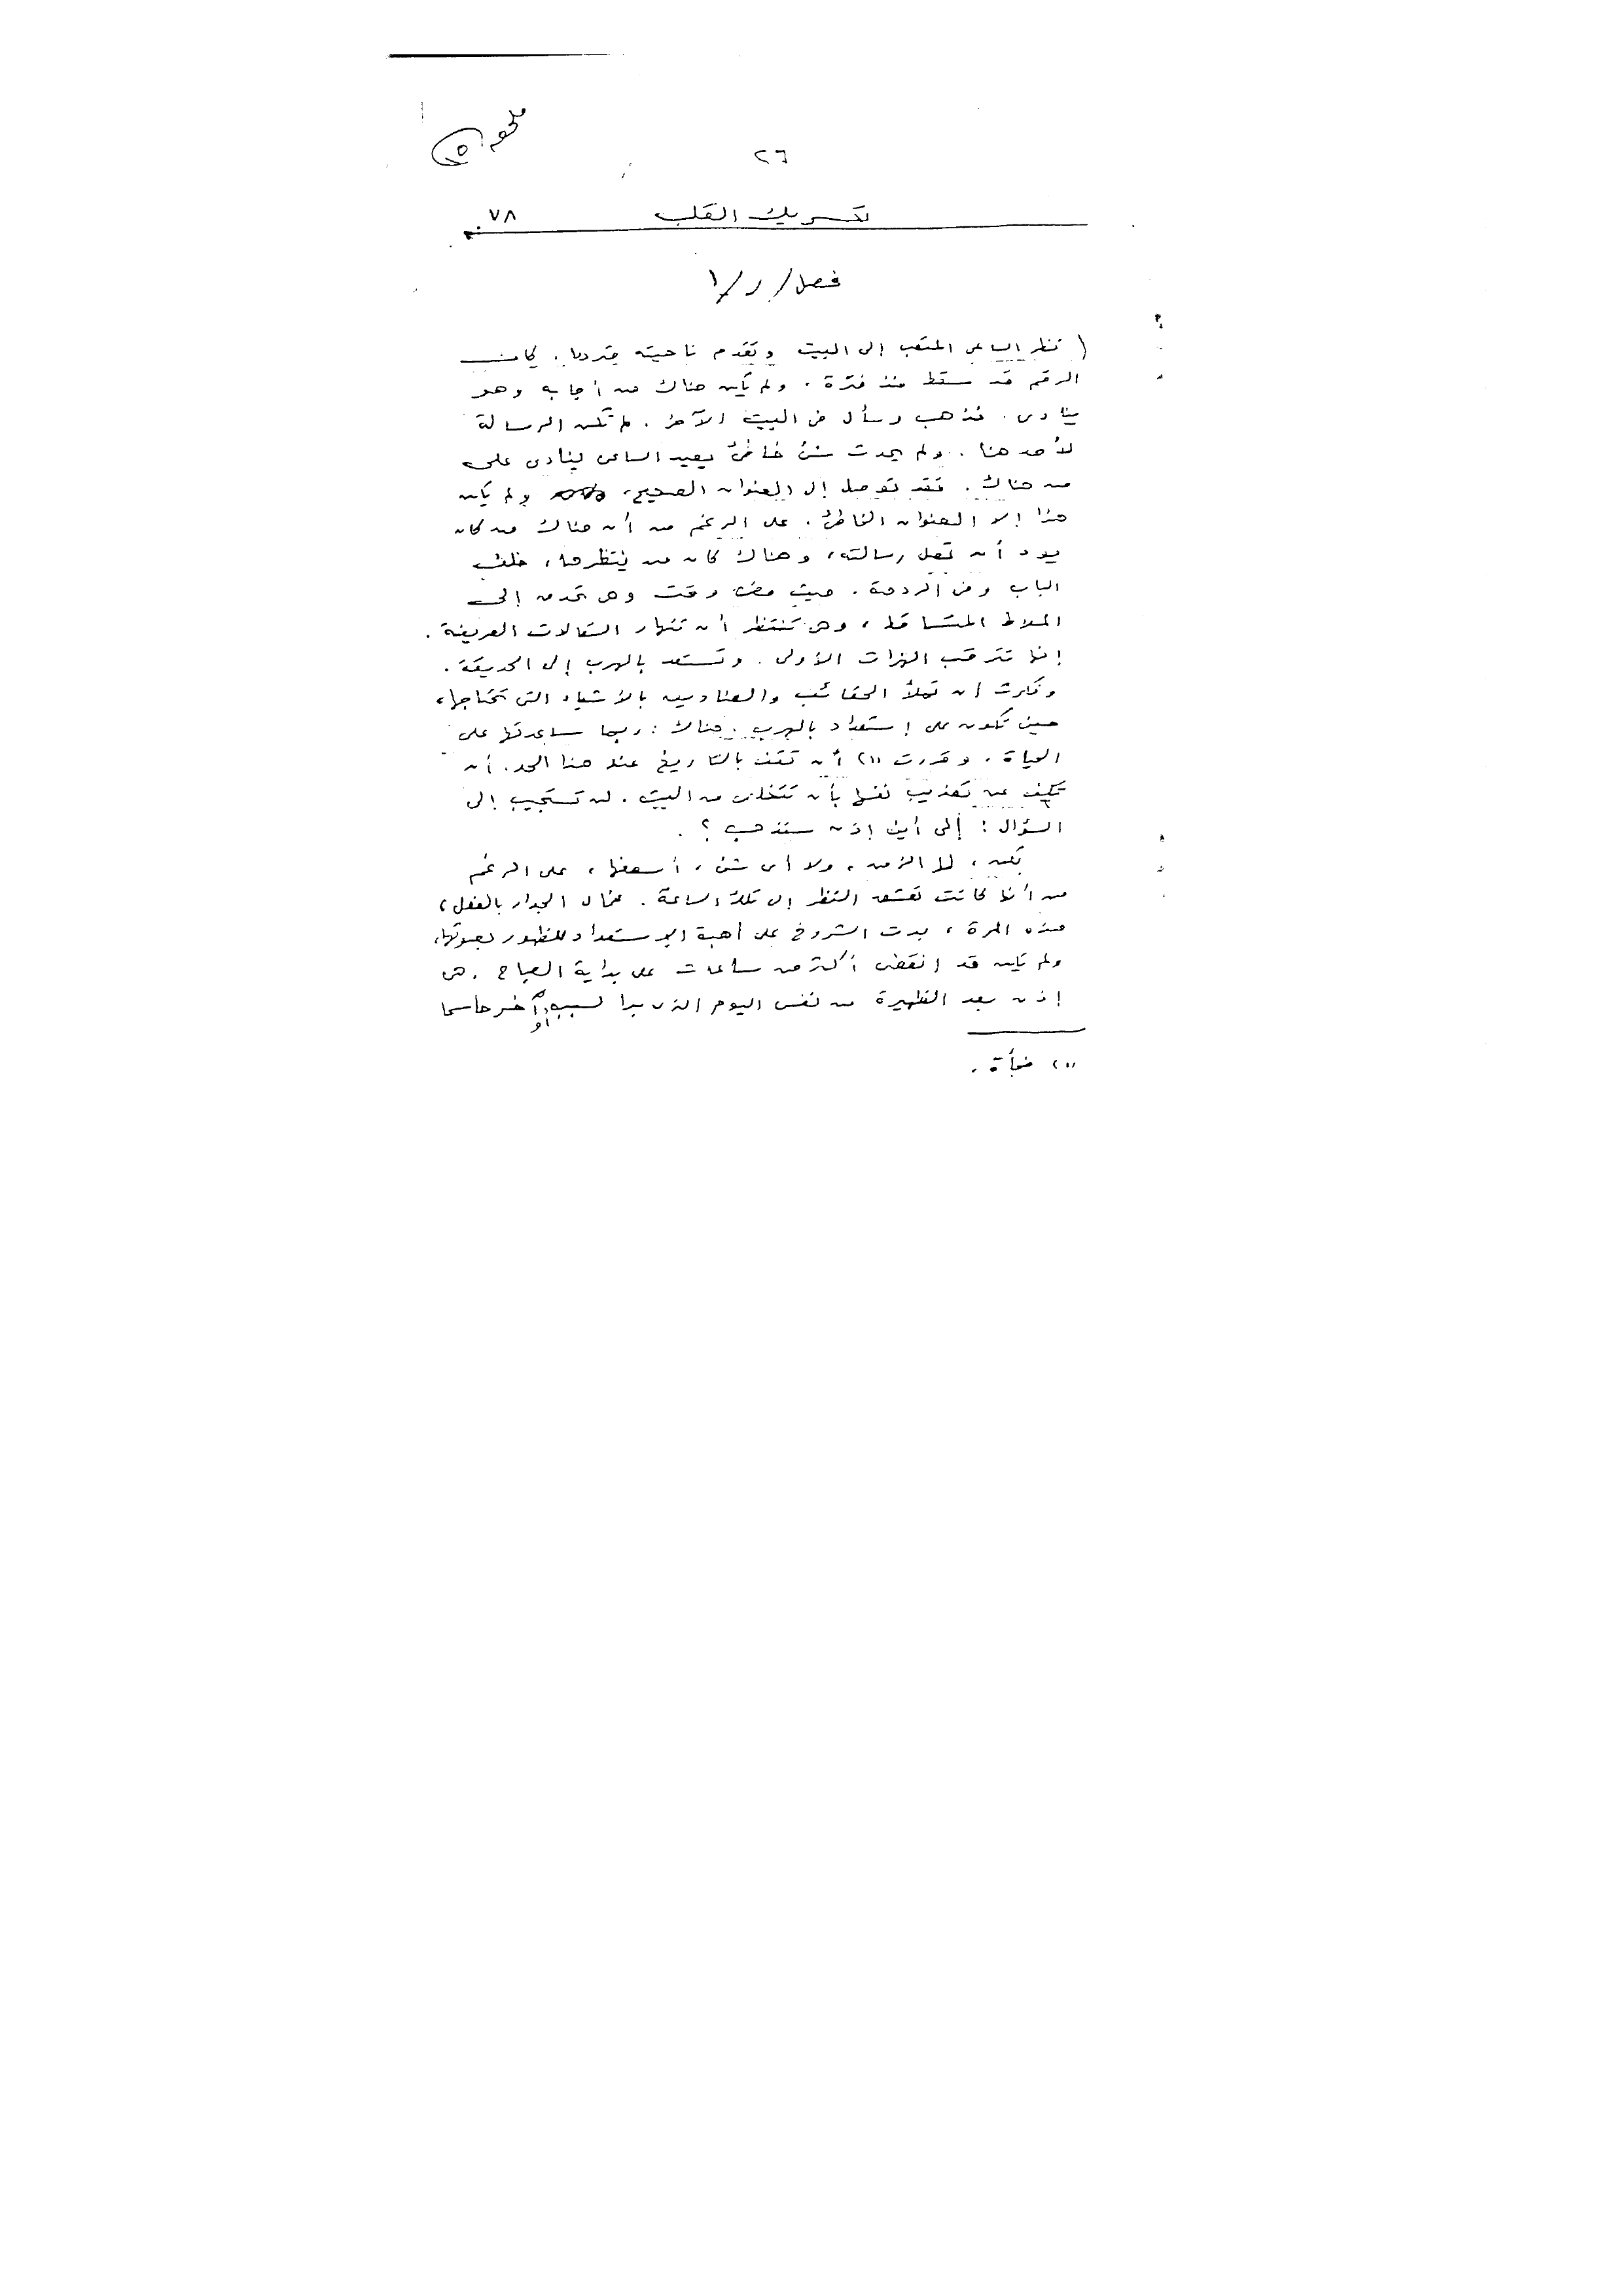 ملحق ١٥
٢٦
تحريك القلب ٧٨
فصل / ر / ١
نظر الساعى المتعب إلى البيت وتقدم ناحيته مترددا. كان
الرقم قد سقط منذ فترة. ولم يكن هناك من أجابه وهو
ينادى. فذهب وسأل فى البيت الآخر. لم تكن الرسالة
لأحد هنا. ولم يحدث شئ خاطئ يعيد الساعى لينادى على
من هناك. فقد توصل إلى العنوان الصحيح، ولم يكن
هذا إلا العنوان الخاطئ. على الرغم من أن هناك من كان
يود أن تصل رسالته، وهناك كان من ينتظرها، خلف
الباب وفى الردهة. حيث مضى وقت وهى تحدق إلى
الملاط المتساقط، وهى تنتظر أن تنهار السقالات العريضة.
إنها تترقب الهزات الأولى. وتستعد بالهرب إلى الحديقة.
وفكرت أن تملأ الحقائب والصناديق بالأشياء التى تحتاجها،
حين تكون على إستعداد بالهرب. هناك: ربما ساعدتها على
الحياة. وقررت (١) أن تقف بالتاريخ عند هذا الحد. أن
تكف عن تعذيب نفسها بأن تتخلى عن البيت. لن تستجيب إلى
السؤال: إلى أين إذن ستذهب؟.
لكن، لا الزمن، ولا أى شئ، أسعفها، على الرغم
من أنها كانت تعتمد النظر إلى تلك الساعة. مال الجدار بالفعل،
هذه المرة، بدت الشروخ على أهبة الاستعداد للظهور بصوتها،
ولم يكن قد إنقضى أكثر من ساعات على بداية الصباح. هى
إذن بعد الظهيرة من نفس اليوم الذى بدا لسبب أو آخر حاسما
(١) فجأة.